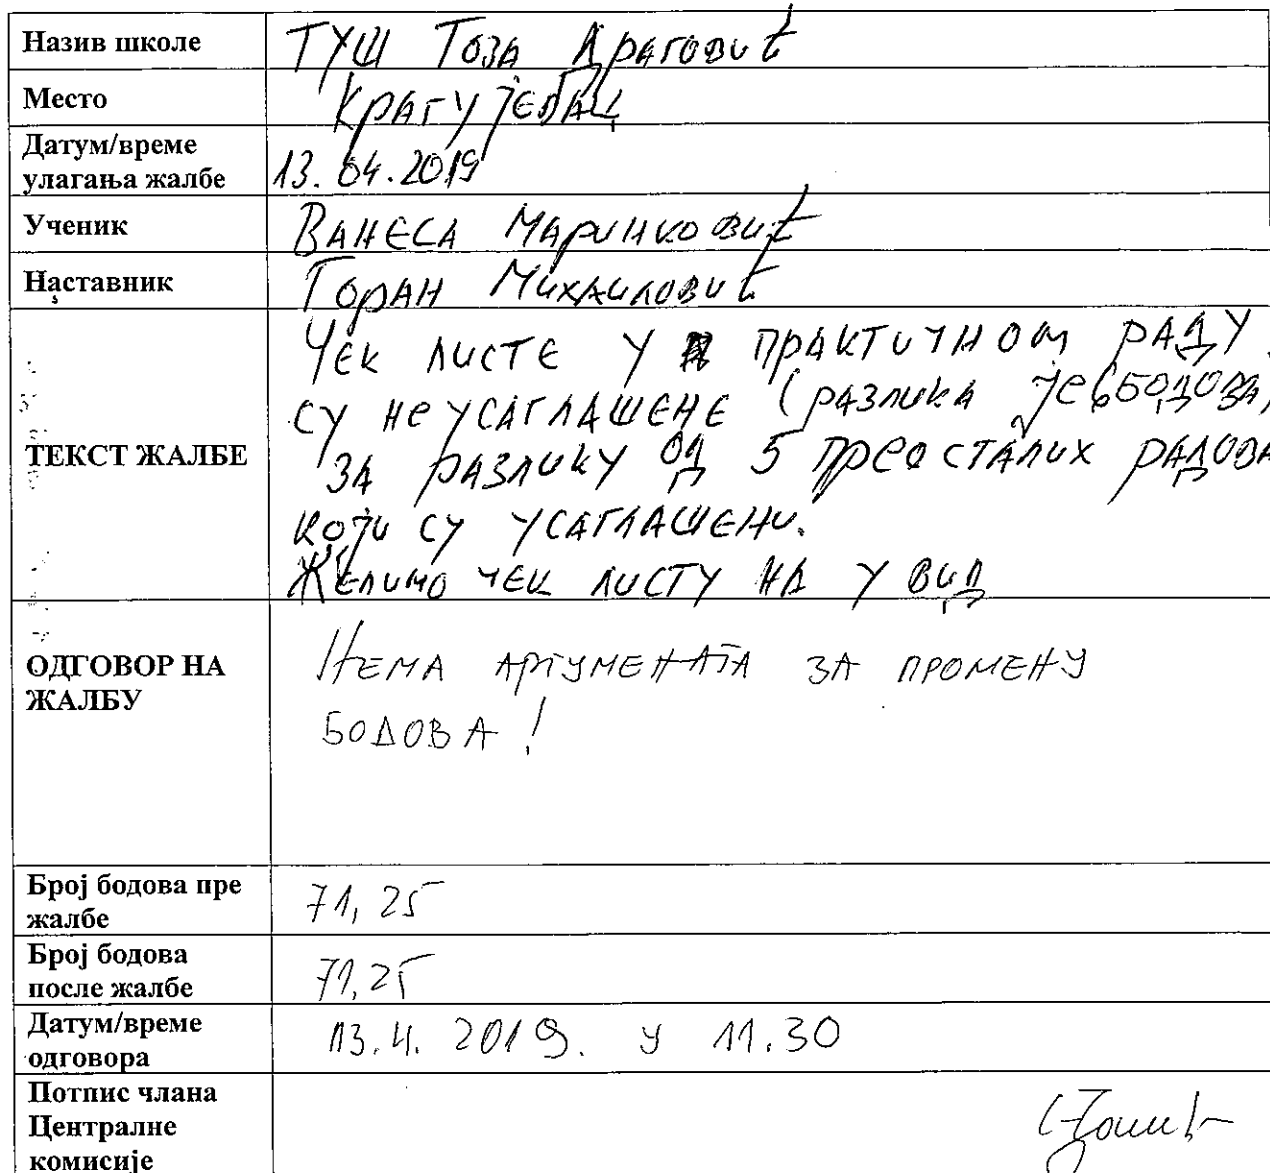 Назив школе ТУШ Тоза Драговић
Место Крагујевац
Датум/време
улагања жалбе 13.04.2019
Ученик Ванеса Маринковић
Наставник Горан Михаиловић
ТЕКСТ ЖАЛБЕ
Чек листе у практичном раду
су неусаглашене (разлика је 6 бодова)
за разлику од 5 преосталих радова
који су усаглашени.
Желимо чек листу на у вид
ОДГОВОР НА
ЖАЛБУ
Нема аргумената за промену
бодова!
Број бодова пре
жалбе 71,25
Број бодова
после жалбе 71,25
Датум/време
одговора 13.4.2019. у 11.30
Потпис члана
Централне
комисије